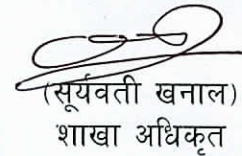 (सूर्यवती खनाल)
शाखा अधिकृत